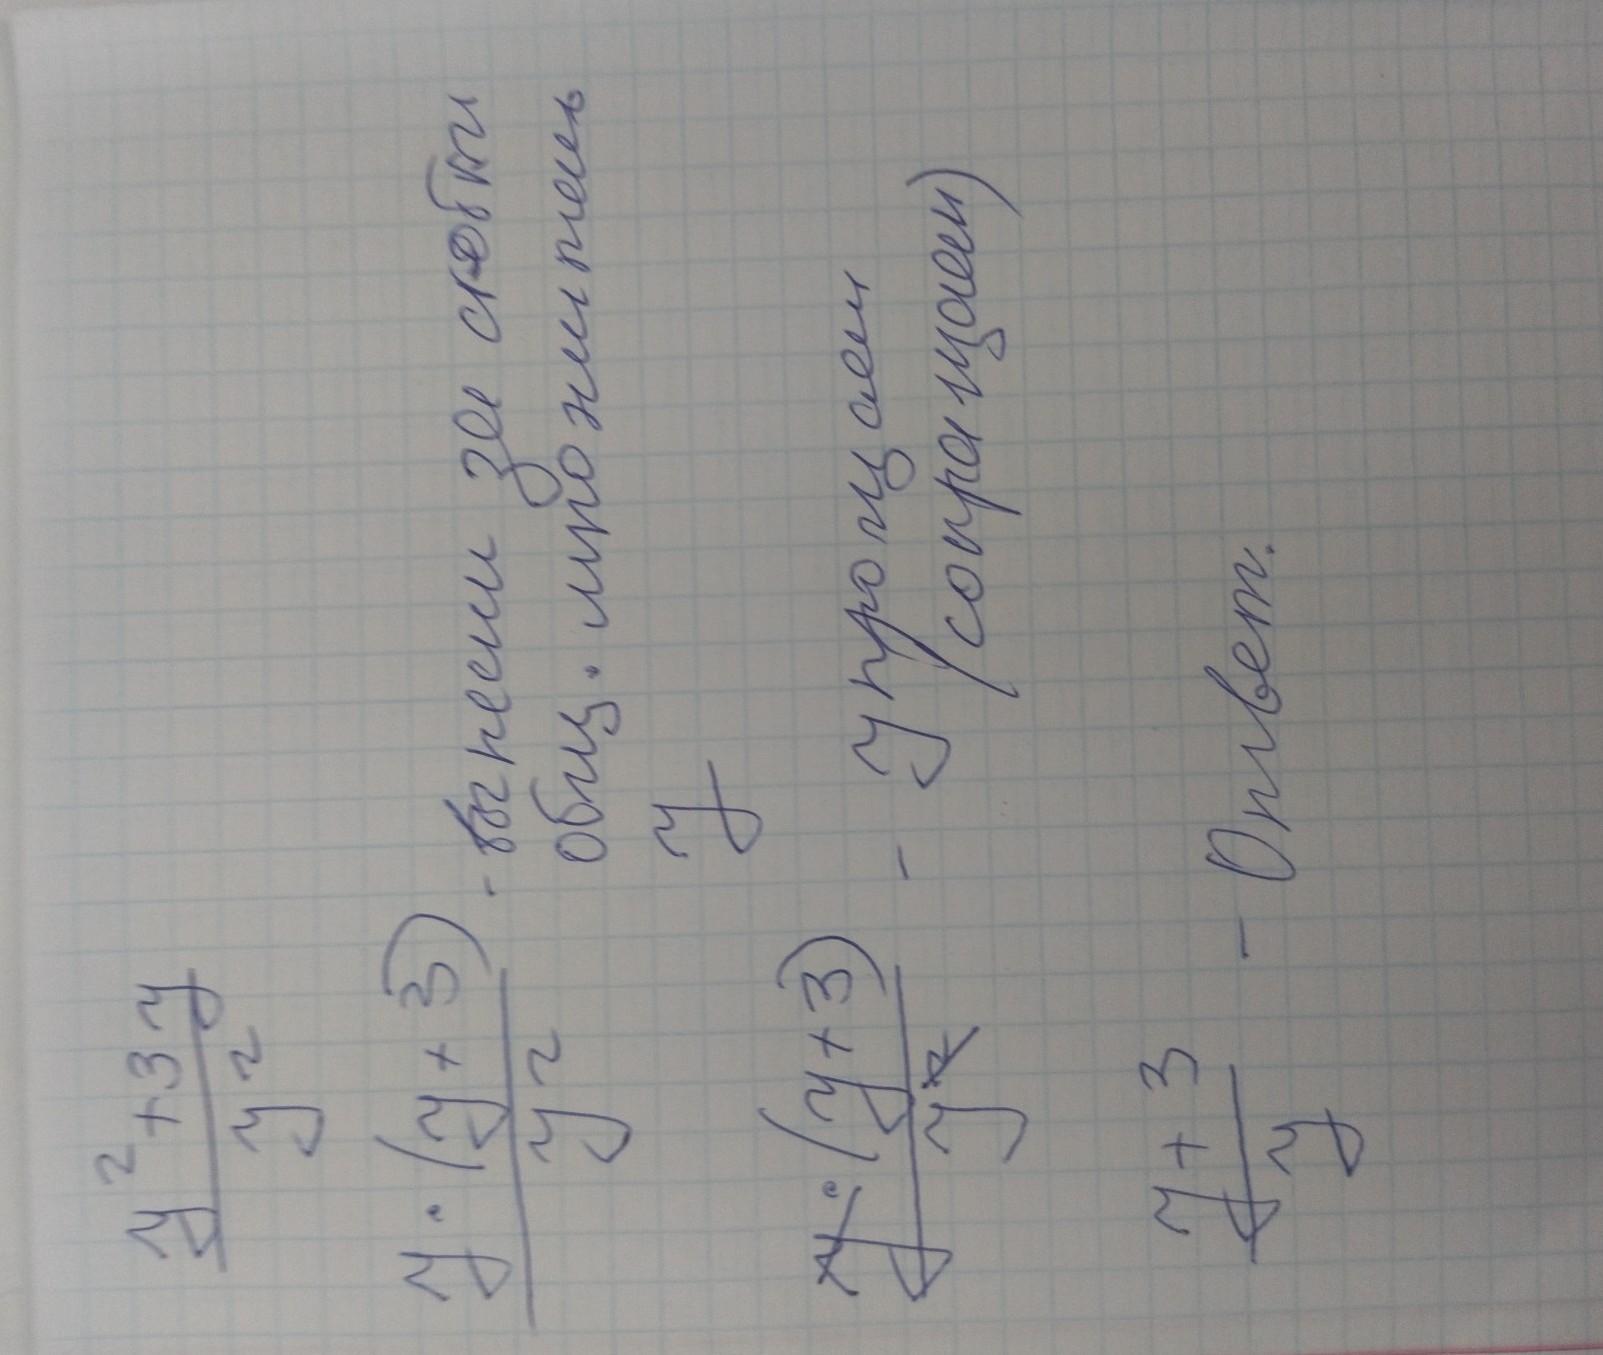 y² + 3y
y²
y · (y + 3) - вынеси за скобки
y² общ. множитель
y
y · (y + 3) - упрощаем
y² (сокращаем)
y + 3 - Ответ.
y